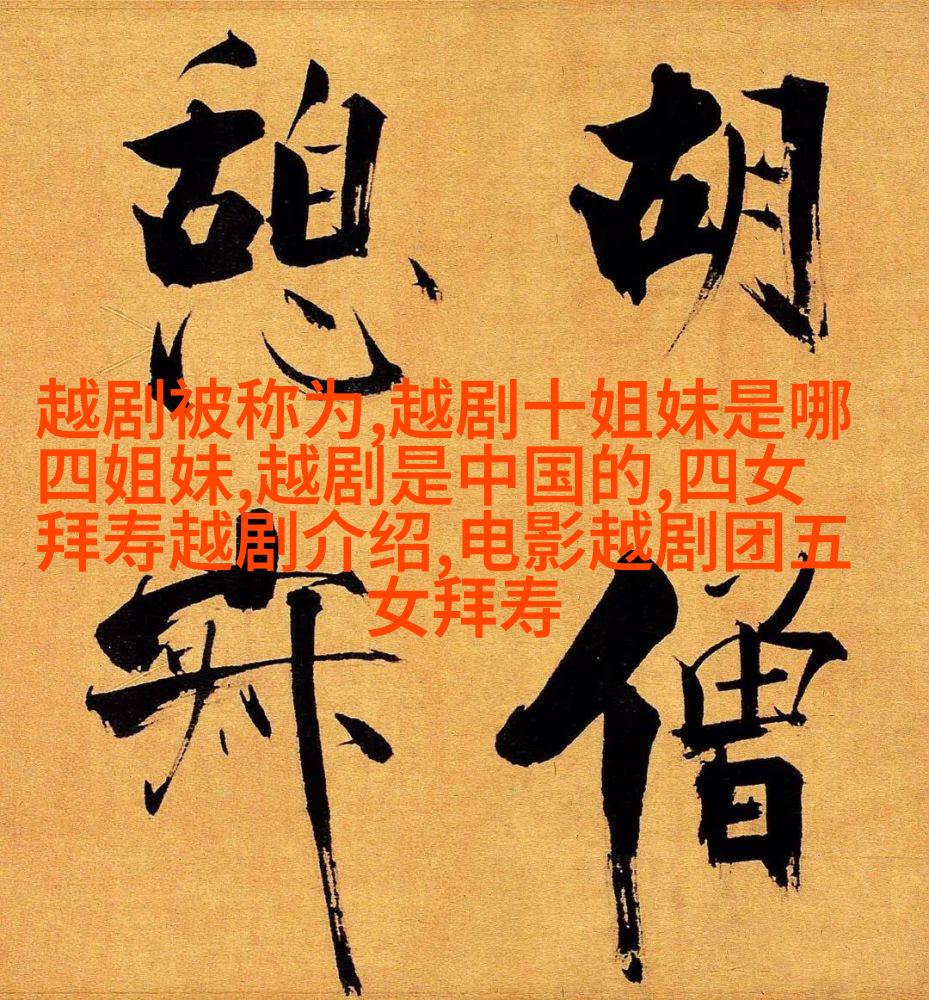 胡僧
憩
越剧被称为,越剧十姐妹是哪
四姐妹,越剧是中国的,四女
拜寿越剧介绍,电影越剧团五
女拜寿